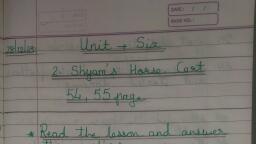 DATE: / /
PAGE NO.:
Unit → Six
2. Shyam's Horse Cart
54, 55 page
* Read the lesson and answer
the